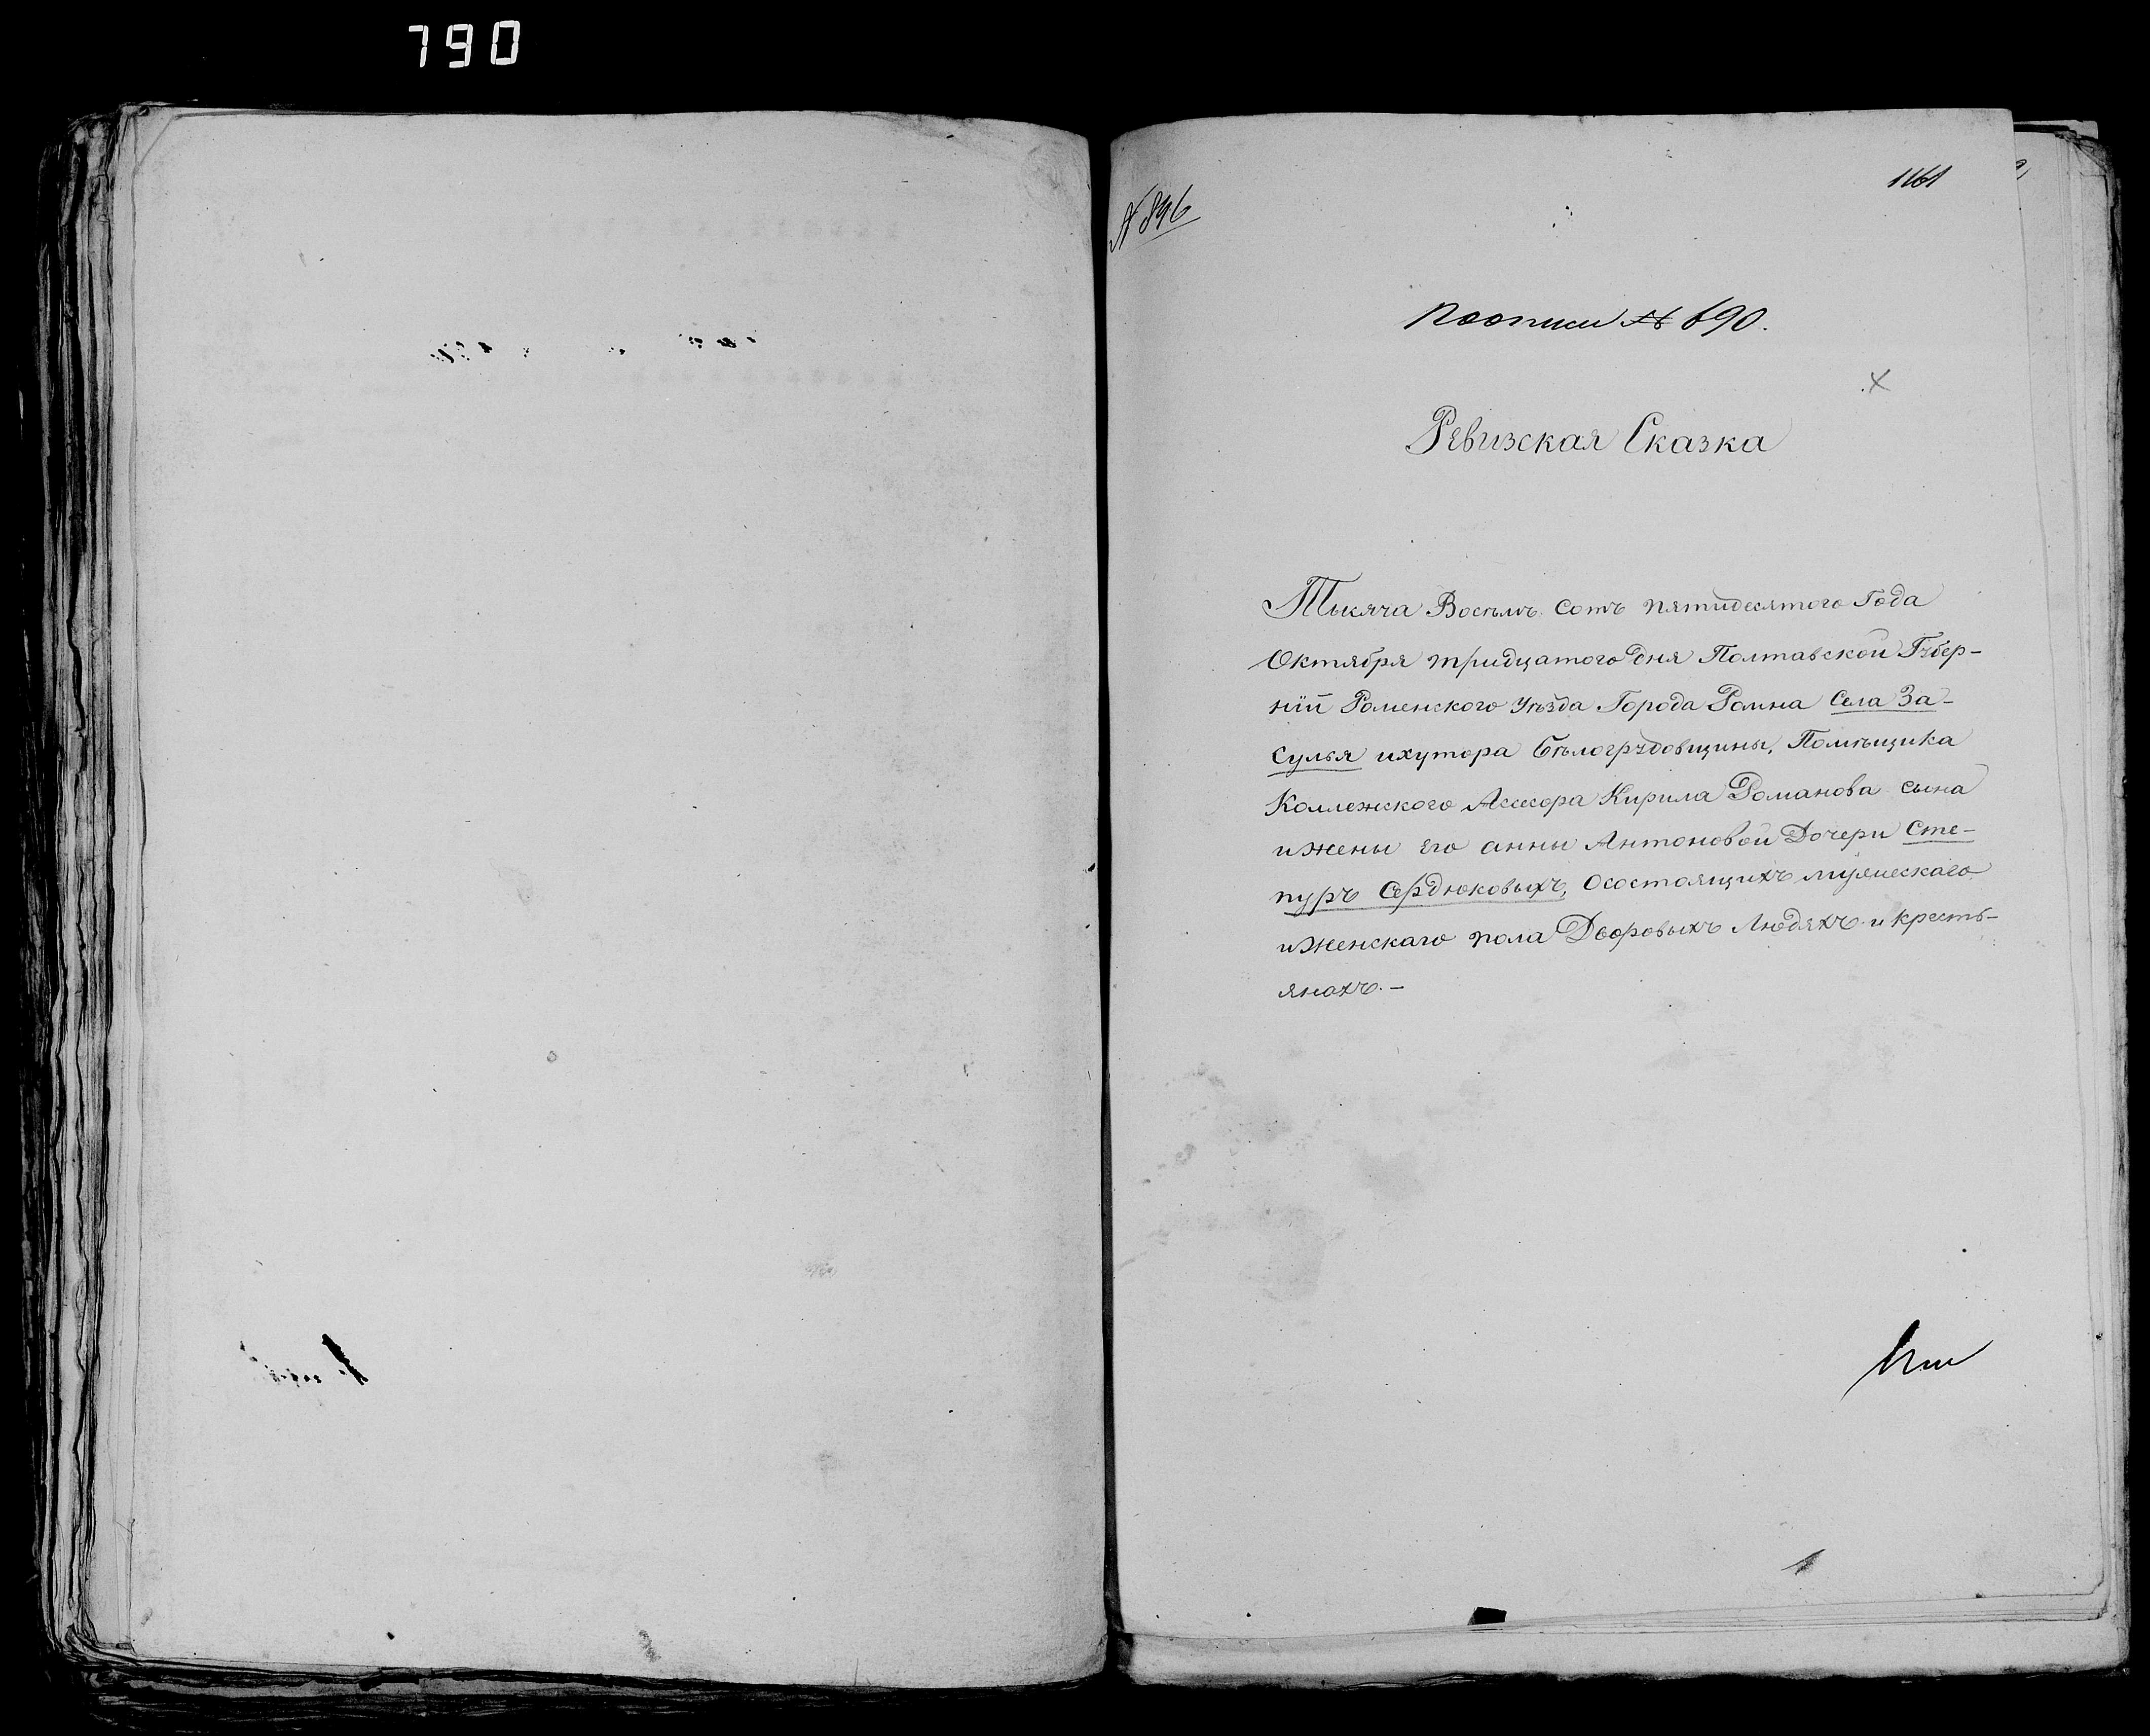 790
1161
N 846
по описи № 690.
Ревизская Сказка
Тысяча Восемъ сотъ пятидесятого Года
Октября тридцатого дня Полтавской Губер-
нiй Роменского Уѣзда Города Ромна Села За-
сулья ихутора Бѣлогрудовщины, Помѣщика
Коллежского Асесора Кирила Романова сына
иЖены Его анны Антоновой Дочери Сте-
пуръ Сердюковыхъ, Осостоящихъ мужескаго
иЖенскаго пола Дворовыхъ Людяхъ и кресть-
янахъ.-